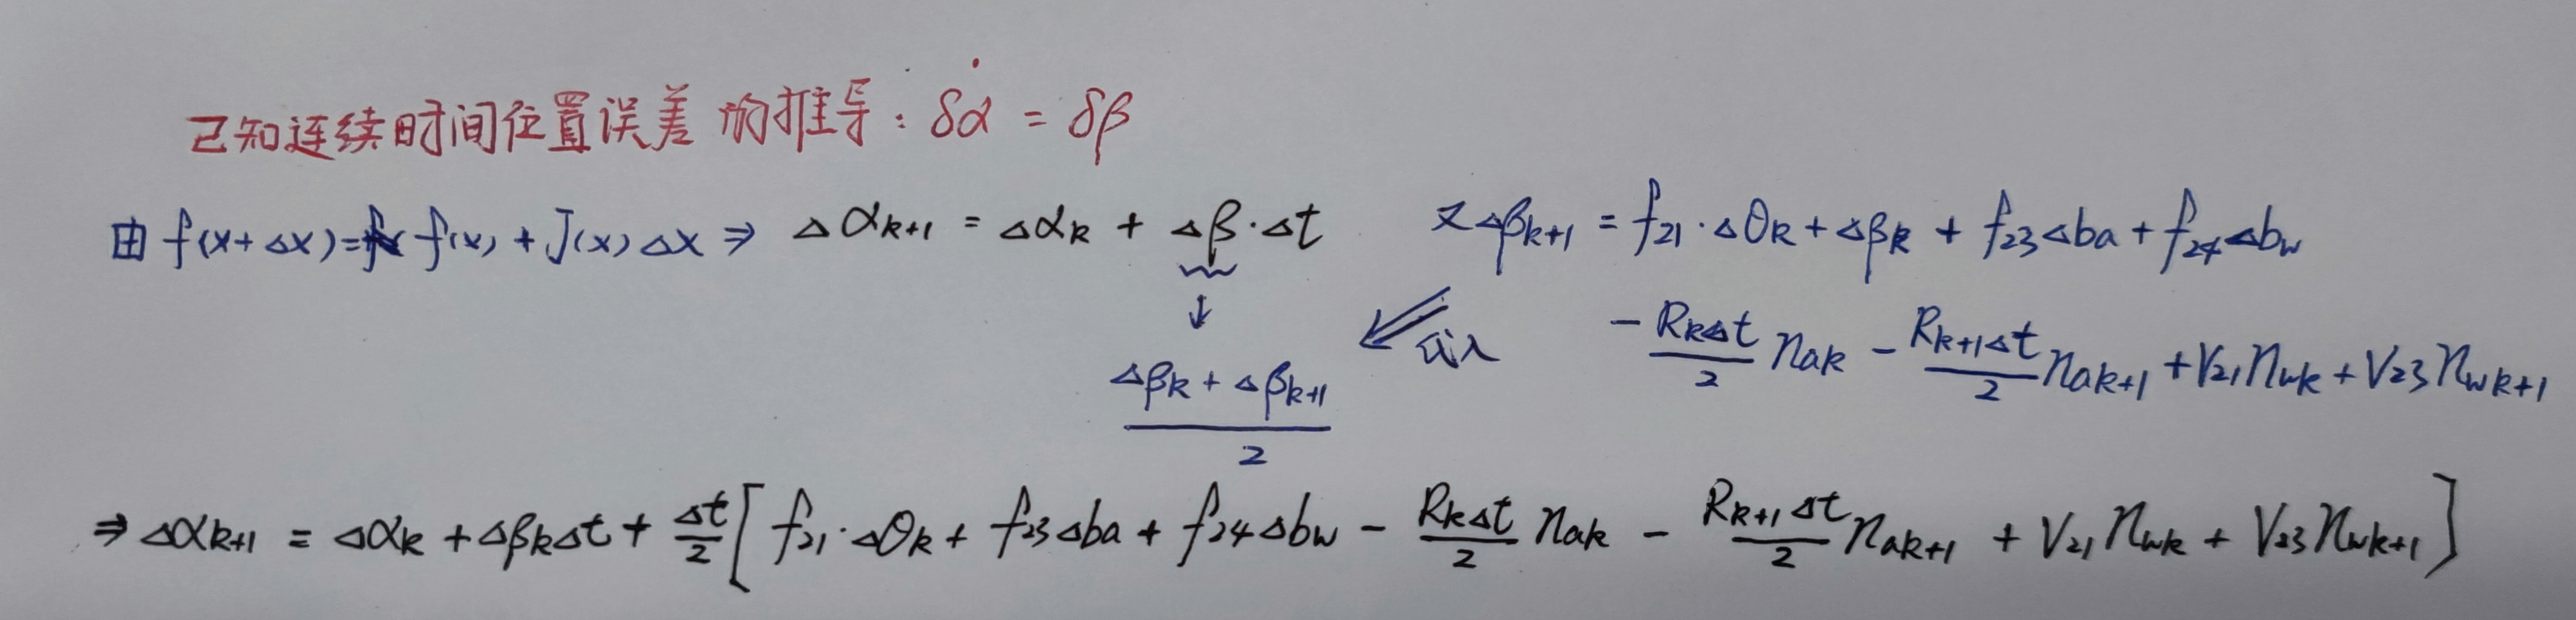 已知连续时间位置误差的推导：δα̇ = δβ
由 f(x+Δx)= f(x) + J(x)Δx ⇒ Δα_{k+1} = Δα_k + Δβ·Δt 又Δβ_{k+1} = f_{21}·Δθ_k + Δβ_k + f_{23}Δba + f_{24}Δb_w
- \frac{R_kΔt}{2} n_{ak} - \frac{R_{k+1}Δt}{2} n_{ak+1} + V_{21}n_{wk} + V_{23}n_{wk+1}
↓ 代入
\frac{Δβ_k + Δβ_{k+1}}{2}
⇒ Δα_{k+1} = Δα_k + Δβ_kΔt + \frac{Δt}{2}[ f_{21}·Δθ_k + f_{23}Δba + f_{24}Δb_w - \frac{R_kΔt}{2} n_{ak} - \frac{R_{k+1}Δt}{2} n_{ak+1} + V_{21}n_{wk} + V_{23}n_{wk+1} ]